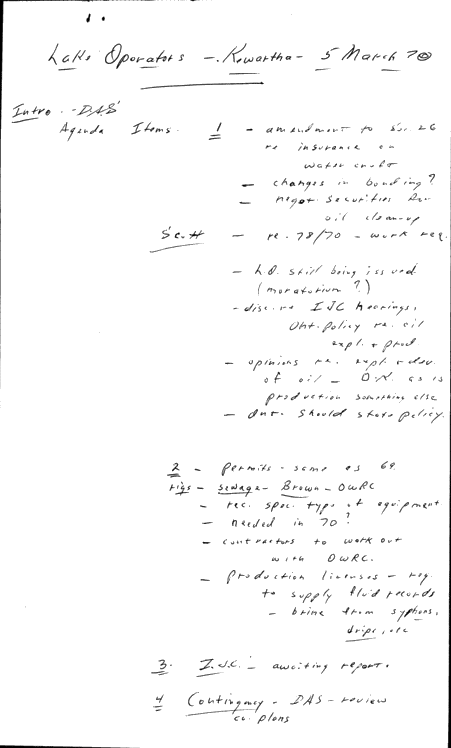 Lake Operators - Kawartha - 5 March 70
Intro. - DAS
Agenda Items. 1 - amendment to Sec. 26
re insurance on
water craft
- changes in bonding?
- negot. securities for
oil clean-up
- re. 78/70 - work req.
- L.O. still being issued
(moratorium?)
- disc. re IJC hearings,
Ont. policy re. oil
expl. + prod
- opinions re. expl. + dev.
of oil - O.K. as is
production something else
- Ont. should state policy.
2 - Permits - same as 69.
rigs - sewage - Brown - OWRC
- rec. spec. type of equipment
- needed in 70?
- contractors to work out
with OWRC.
- Production licenses - req.
to supply fluid records
- brine from syphons,
drips, etc
3. I.J.C. - awaiting report.
4 Contingency - DAS - review
co. plans